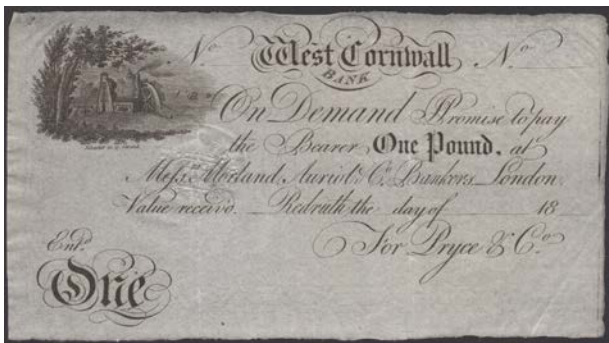 No West Cornwall No
BANK
On Demand I Promise to pay
the Bearer, One Pound, at
Messrs Morland, Auriol & Co. Bankers London.
Value receiv'd. Redruth the day of 18
Entd For Pryce & Co.
One